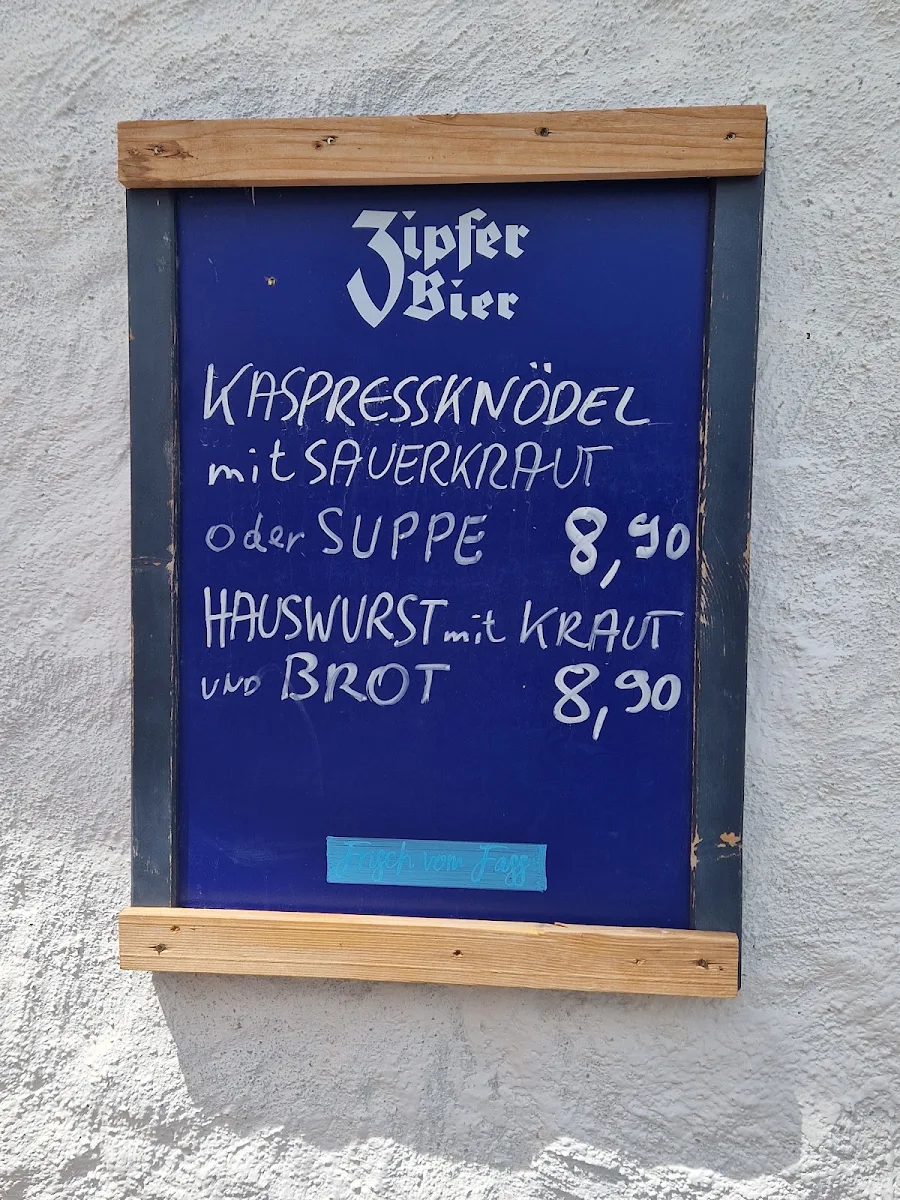 Zipfer
Bier
KASPRESSKNÖDEL
mit SAUERKRAUT
oder SUPPE 8,90
HAUSWURST mit KRAUT
UND BROT 8,90
Frisch vom Fass